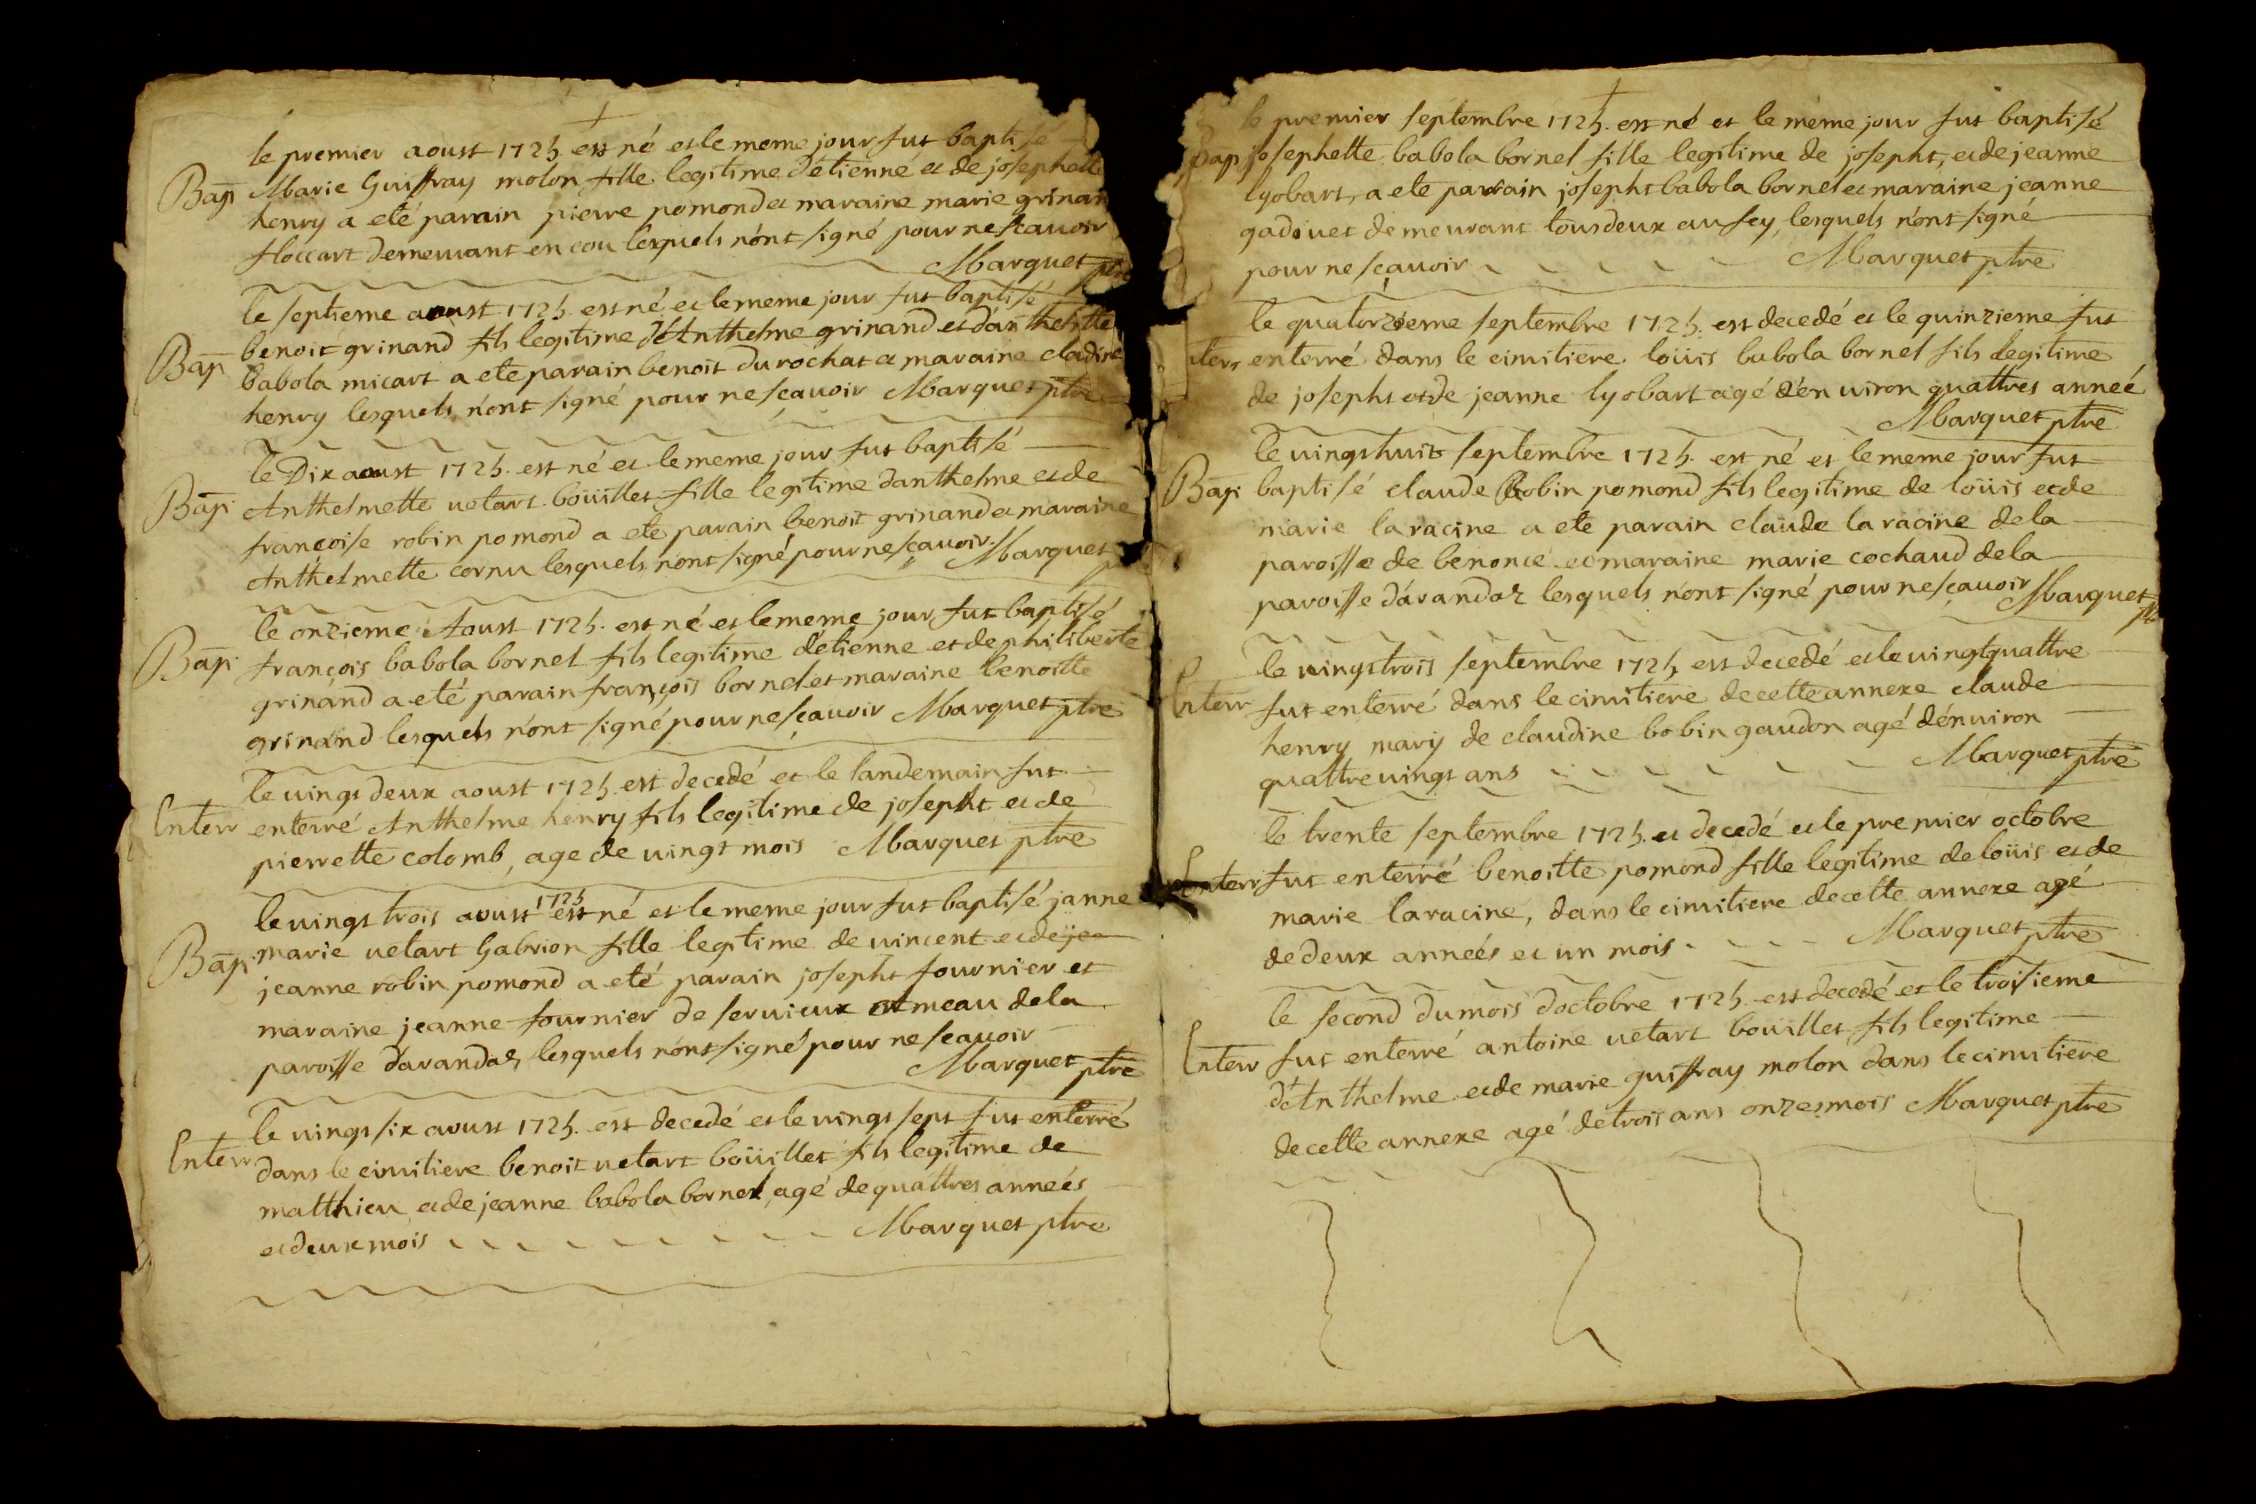 le premier aoust 1725 est né et le meme jour fut baptisé
Bap Marie Guiffray molon fille legitime d'étienne et de josephette
henry a eté parain pierre pomond et maraine marie grinan
floccart demeurant en cou lesquels n'ont signé pour ne scavoir
Marquet
le septieme aoust 1725. est né et le meme jour fut baptisé
Bap benoit grinand fils legitime d'Anthelme grinand et d'anthelmette
babola micart a ete parain benoit durochat et maraine cladine
henry lesquels n'ont signé pour ne sçavoir Marquet ptre
le Dix aoust 1725. est né et le meme jour fut baptisé
Bap Anthelmette uetart boüillet fille legitime danthelme et de
françoise robin pomond a ete parain benoit grinand et maraine
Anthelmette cornu lesquels n'ont signé pour ne sçavoir Marquet
le onzieme Aoust 1725. est né et le meme jour fut baptisé
Bap françois babola bornet fils legitime d'étienne et de philiberte
grinand a eté parain françois bornet et maraine benoitte
grinand lesquels n'ont signé pour ne sçavoir Marquet ptre
le vingt deux aoust 1725. est decedé et le landemain fut
Enterr enterré Anthelme henry fils legitime de josepht et de
pierrette colomb, age de vingt mois Marquet ptre
le vingt trois aoust 1725 est né et le meme jour fut baptisé janne
Bap marie uetart Gabrion fille legitime de vincent et de jea
jeanne robin pomond a eté parain josepht fournier et
maraine jeanne fournier de servieux meau de la
paroisse d'arandas, lesquels n'ont signé pour ne scavoir
Marquet ptre
le vingt six aoust 1725. est decedé et le vingt sept fut enterré
Enterr dans le cimitiere benoit uetart boüillet fils legitime de
matthieu et de jeanne babola bornet agé de quattres anneés
et deux mois Marquet ptre
le premier septembre 1725. est né et le meme jour fut baptisé
Bap josephette babola bornet fille legitime de josepht, et de jeanne
lyobart, a ete parrain josepht babola bornet et maraine jeanne
gadouet demeurant tous deux au fey, lesquels n'ont signé
pour ne sçavoir Marquet ptre
le quatorzieme septembre 1725. est decedé et le quinzieme fut
terr enterré dans le cimitiere. loüis babola bornet fils legitime
de josepht et de jeanne lyobart agé d'environ quattres anneé
Marquet ptre
le vingt huit septembre 1725. est né et le meme jour fut
Bap baptisé claude Robin pomond fils legitime de loüis et de
marie laracine a ete parain claude laracine de la
paroisse de benonce et maraine marie cochaud de la
paroisse d'arandaz lesquels n'ont signé pour ne sçavoir Marquet
le vingt trois septembre 1725 est decedé et le vingt quattre
Enterr fut enterré dans le cimitiere de cette annexe claude
henry mary de claudine bobin gaudon agé d'environ
quattre vingt ans Marquet ptre
le trente septembre 1725. et decedé et le premier octobre
Enterr fut enterré benoitte pomond fille legitime de loüis et de
marie laracine, dans le cimitiere de cette annexe agé
de deux anneés et un mois. Marquet ptre
le second du mois doctobre 1725. est decedé et le troisieme
Enterr fut enterré antoine uetart boüillet fils legitime
d'Anthelme et de marie guiffray molon dans le cimitiere
de cette annexe agé de trois ans onzes mois Marquet ptre